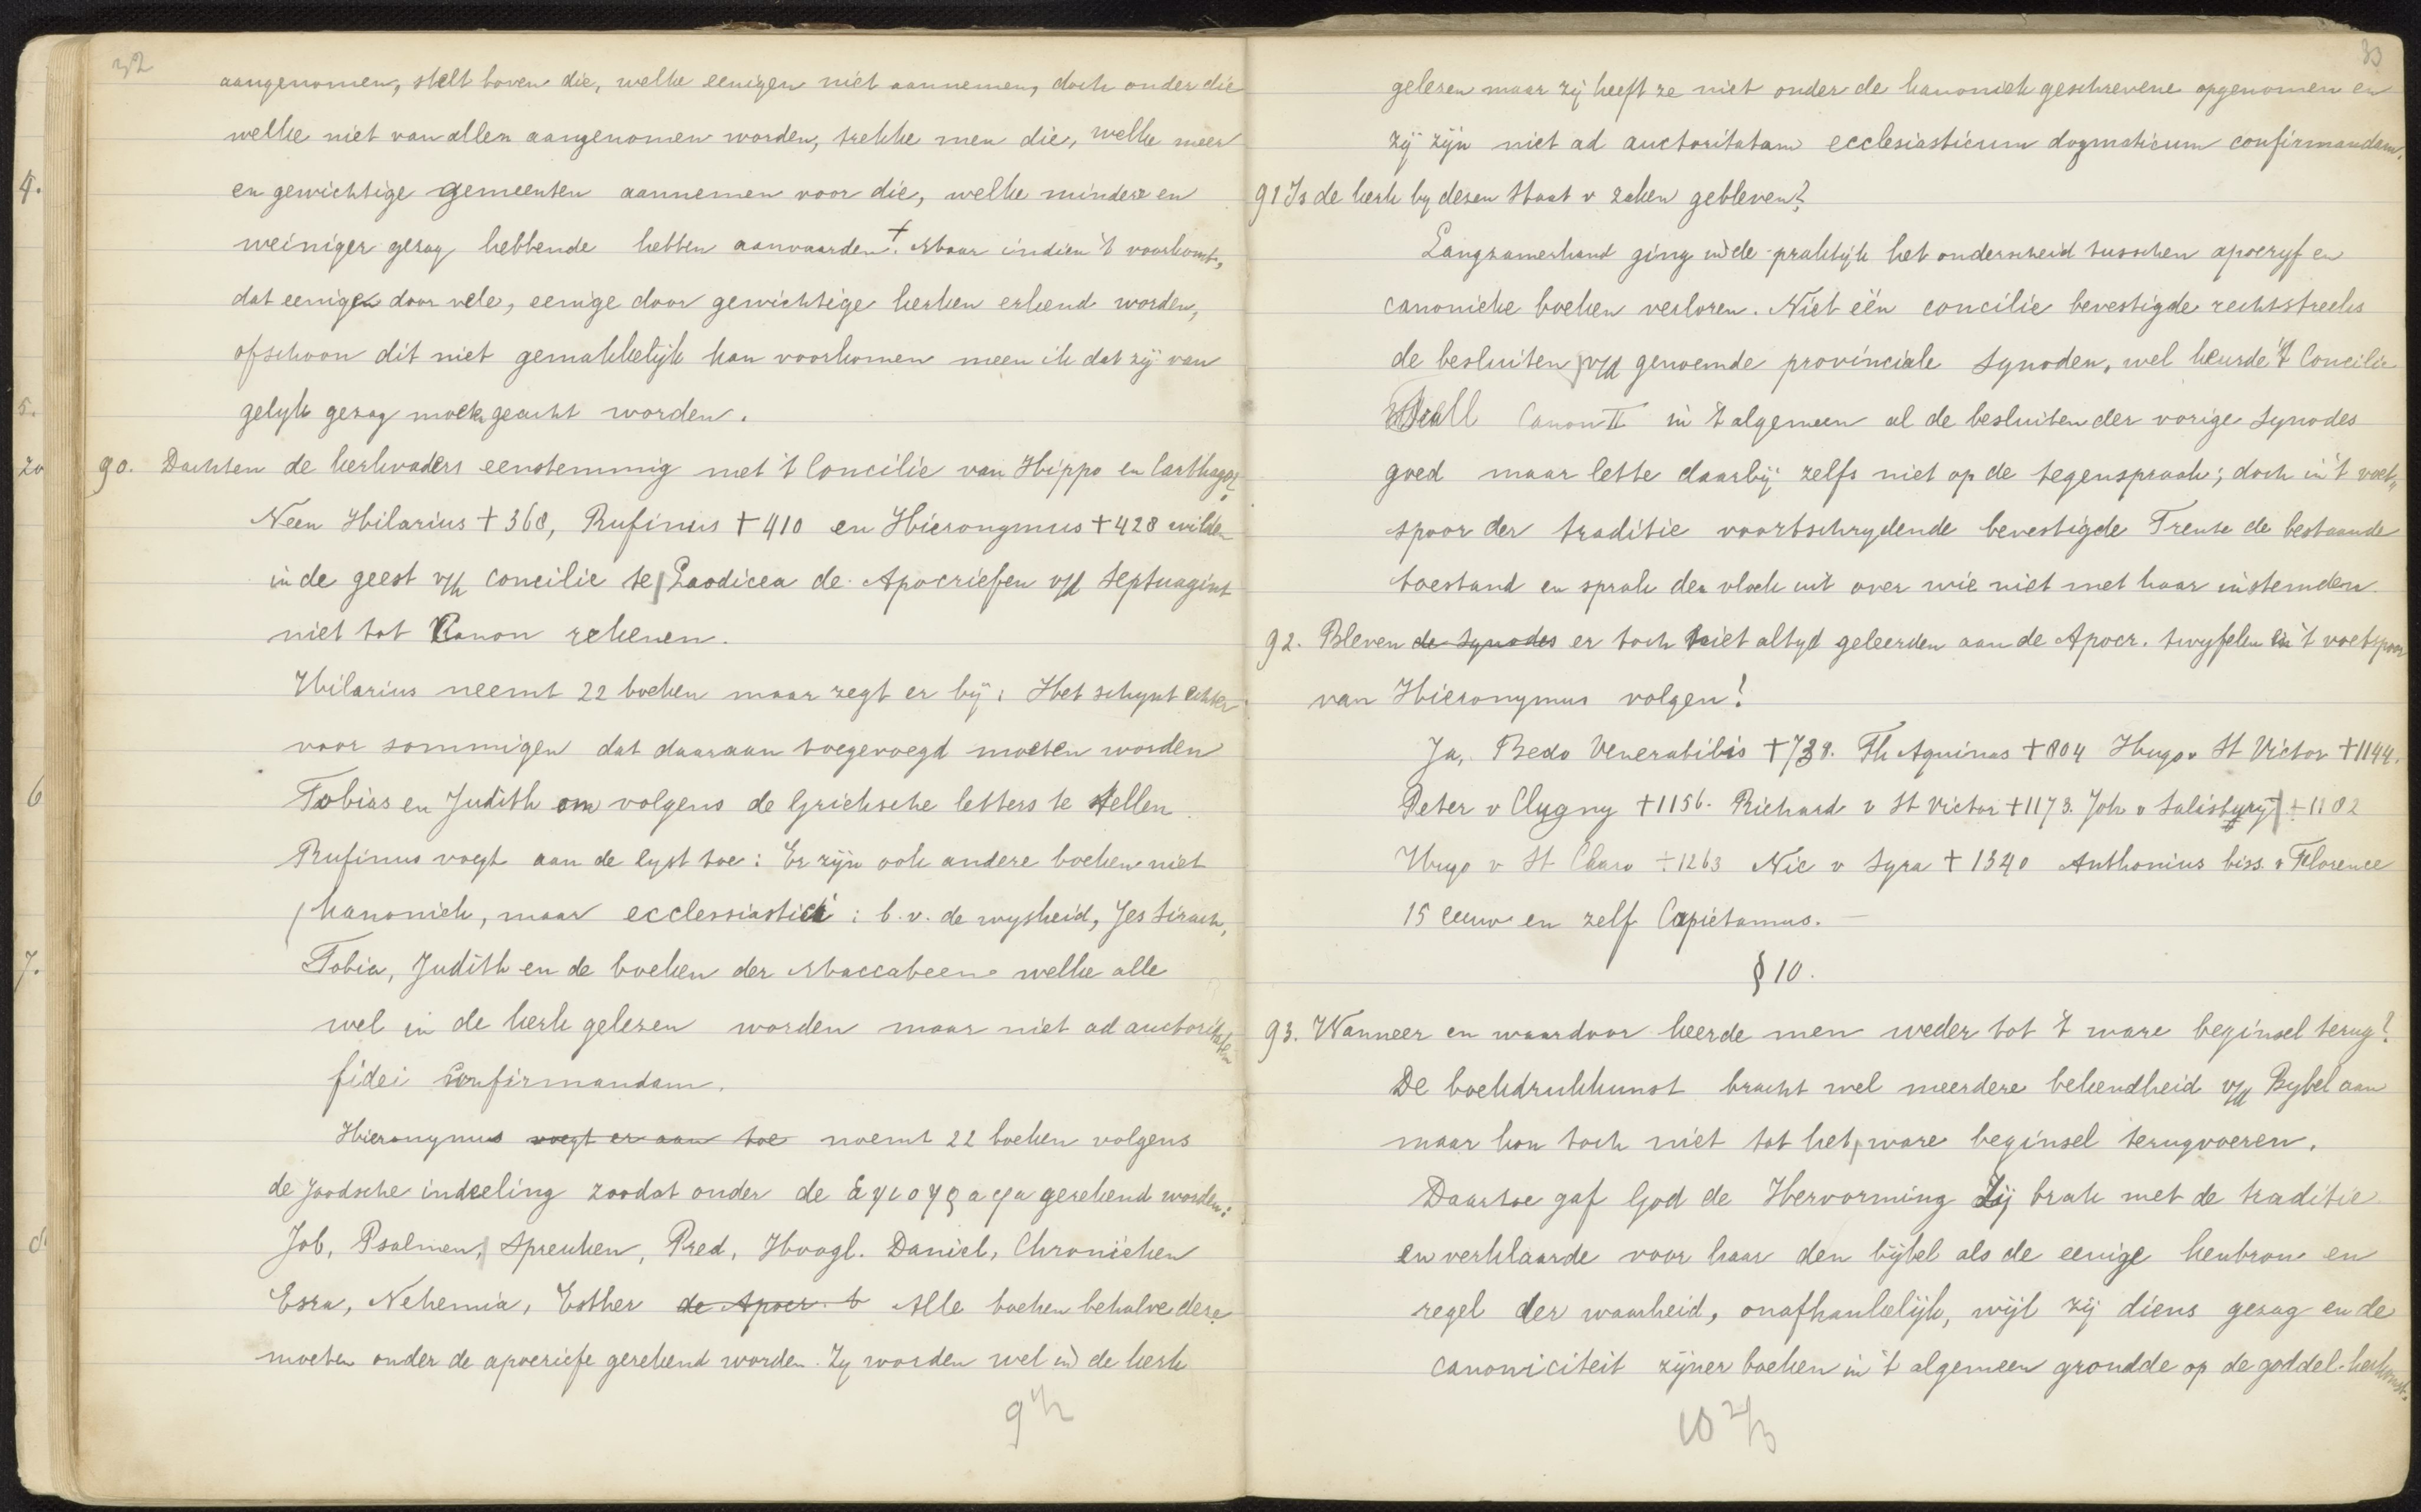 32
aangenomen, stelt boven die, welke eenigen niet aannemen, doch onder die
welke niet van allen aangenomen worden, trekke men die, welke meer
en gewichtige gemeenten aannemen voor die, welke mindere en
weiniger gezag hebbende hebben aanvaarden. + Maar indien 't voorkomt,
dat eenigen door vele, eenige door gewichtige kerken erkend worden,
ofschoon dit niet gemakkelijk kan voorkomen meen ik dat zij van
gelyk gezag moeten geacht worden.
90. Dachten de kerkvaders eenstemmig met 't Concilie van Hippo en Carthago?
Neen Hilarius + 368, Rufinus + 410 en Hieronymus + 428 wilden
in de geest v/h concilie te Laodicea de Apocriefen v/d Septuagint
niet tot Canon rekenen.
Hilarius neemt 22 boeken maar zegt er bij: Het schynt echter
voor sommigen dat daaraan toegevoegd moeten worden
Tobias en Judith om volgens de Grieksche letters te stellen.
Rufinus voegt aan de lyst toe: Er zijn ook andere boeken niet
kanoniek, maar ecclessiastici: b.v. de wysheid, Jes Sirach,
Tobia, Judith en de boeken der Maccabeen welke alle
wel in de kerk gelezen worden maar niet ad auctoritatem
fidei confirmandam.
Hieronymus voegt er aan toe noemt 22 boeken volgens
de Joodsche indeeling zoodat onder de gerekend worden:
Job, Psalmen, Spreuken, Pred, Hoogl. Daniel, Chronieken
Esra, Nehemia, Esther de Apocr. b Alle boeken behalve deze
moeten onder de apocriefe gerekend worden. Zy worden wel in de kerk
33
gelezen maar zij heeft ze niet onder de kanoniek geschrevene opgenomen en
zij zijn niet ad auctoritatam ecclesiasticum dogmaticum confirmandam.
91 Is de kerk by dezen Staat v zaken gebleven?
Langzamerhand ging in de praktijk het onderscheid tusschen apocryf en
canonieke boeken verloren. Niet één concilie bevestigde rechtstreeks
de besluiten v/d genoemde provinciale Synoden, wel keurde 't Concilie
Canon II in 't algemeen al de besluiten der vorige Synodes
goed maar lette daarbij zelfs niet op de tegenspraak; doch in 't voet„
spoor der traditie voortschrydende bevestigde Trente de bestaande
toestand en sprak den vloek uit over wie niet met haar instemden.
92. Bleven de Synodes er toch niet altyd geleerden aan de Apocr. twyfelen en 't voetspoor
van Hieronymus volgen?
Ja, Bedo Venerabilis + 738. Th Aquinas + 804 Hugo v St Victor + 1144.
Peter v Clugny + 1156. Richard v St Victor + 1173. Joh v Salisbury + 1182
Hugo v St Charo + 1263 Nic v Lyra + 1340 Anthonius biss. v Florence
15 eeuw en zelf Capietamus. —
§ 10.
93. Wanneer en waardoor keerde men weder tot 't ware beginsel terug?
De boekdrukkunst bracht wel meerdere bekendheid v/d Bybel aan
maar kon toch niet tot het ware beginsel terugvoeren.
Daartoe gaf God de Hervorming Zij brak met de traditie
en verklaarde voor haar den bijbel als de eenige kenbron en
regel der waarheid, onafhankelijk, wijl zij diens gezag en de
canoniciteit zijner boeken in 't algemeen grondde op de goddel. herkomst.
4.
5.
20
6
7.
8.
10 2/3